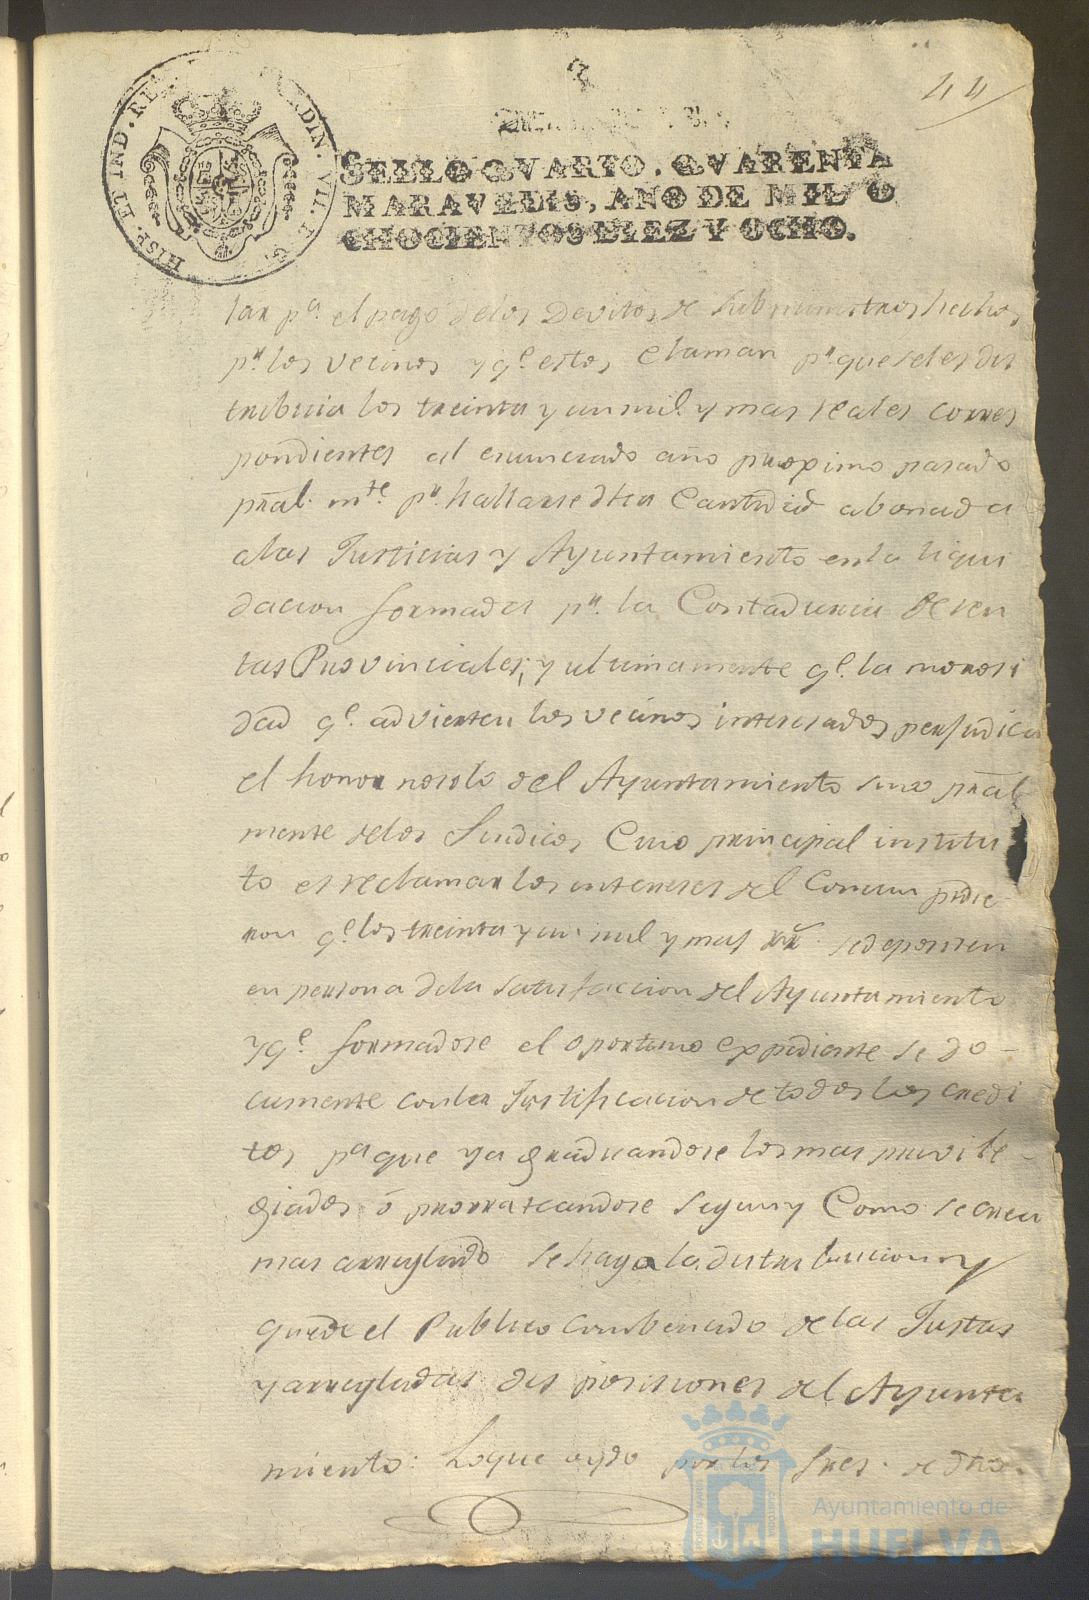 44
HISP. ET IND. RE DIN. VII. D. G.
SELLO QVARTO. QVARENTA
MARAVEDIS, AÑO DE MIL O
CHOCIENTOS DIEZ Y OCHO.
tar pa. el pago de los Devitos de Subministros hechos
pr. los vecinos y qe. estos claman pr. que se les dis
tribuia los treinta y un mil. y mas reales corres
pondientes al enunciado año proximo pasado
pral. mte. pr. hallarse dha Cantidad abonada
a las Justicias y Ayuntamiento en la liqui
dacion formada pr. la Contaduria de ren
tas Provinciales; y ultimamente qe. la morosi
dad qe. advierten los vecinos interesados perjudica
el honor no solo del Ayuntamiento sino pral
mente de los Sindicos Cuio principal institu
to es reclamar los intereses del Comun pidie
ron qe. los treinta y un mil y mas rr. se depositen
en persona de la satisfaccion del Ayuntamiento
y qe. formadose el oportuno expediente se do-
cumente con la Justificacion de todos los credi
tos pa que ya graduandose los mas privile-
giados ó prorrateandose segun y Como se crea
mas arreglado se haga la distribucion y
quede el Publico combencido de las Justas
y arregladas disposiciones del Ayunta
miento: Lo que oydo por los Sres. de dho.
Ayuntamiento de
HUELVA